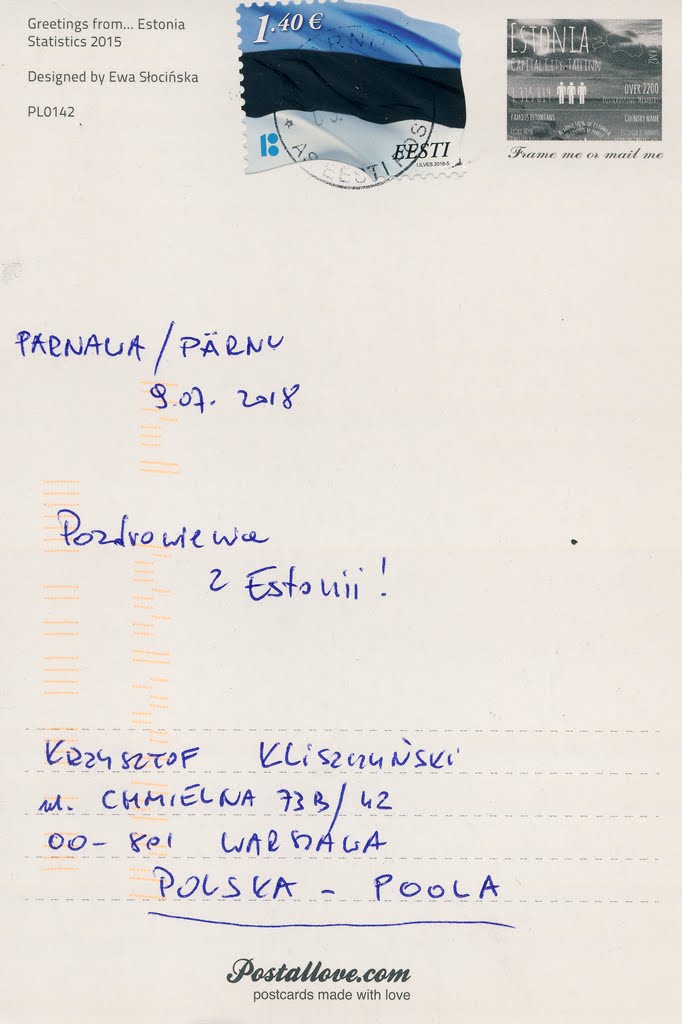 Greetings from... Estonia
Statistics 2015
Designed by Ewa Słocińska
PL0142
1.40 €
EESTI
I.ILVES 2018-5
PÄRNU
* A.S EESTI POS
ESTONIA
CAPITAL CITY: TALLINN
OVER 2200
FAMOUS ESTONIANS
COUNTRY NAME
Frame me or mail me
PARNAWA / PÄRNU
9.07. 2018
Pozdrowienia
z Estonii!
KRZYSZTOF KLISZCZYŃSKI
ul. CHMIELNA 73B/42
00-801 WARSZAWA
POLSKA - POOLA
Postallove.com
postcards made with love